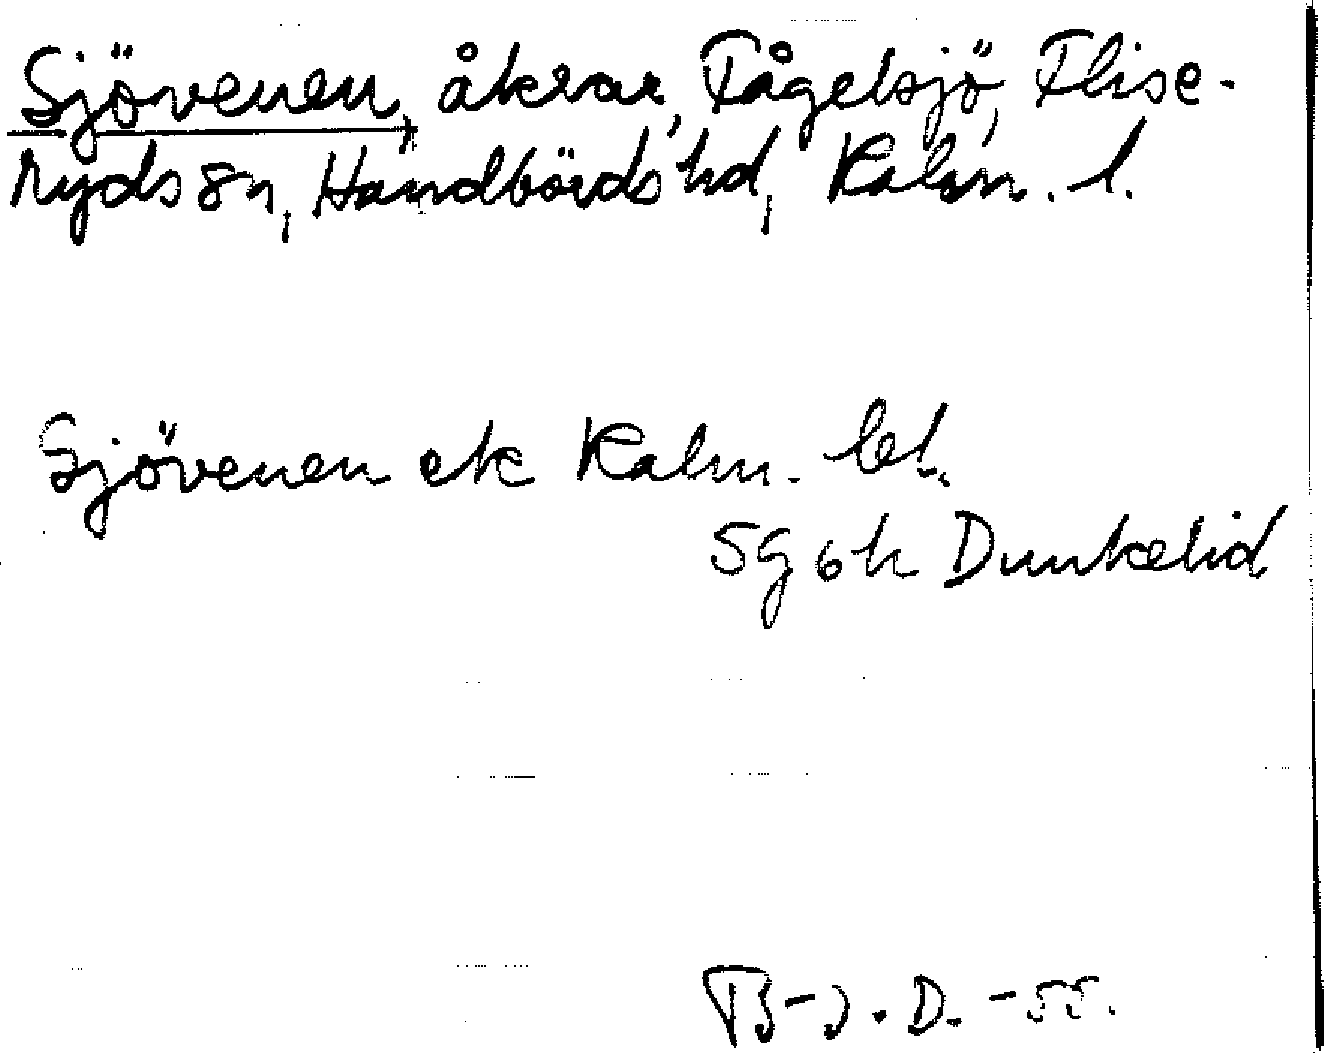 Sjövenen, åkrar, Fågelsjö, Flise-
ryds sn, Handbörds hd, Kalm. l.
Sjövenen ek Kalm. lel.
59 ok Dunkelid
B-J. D. -55.